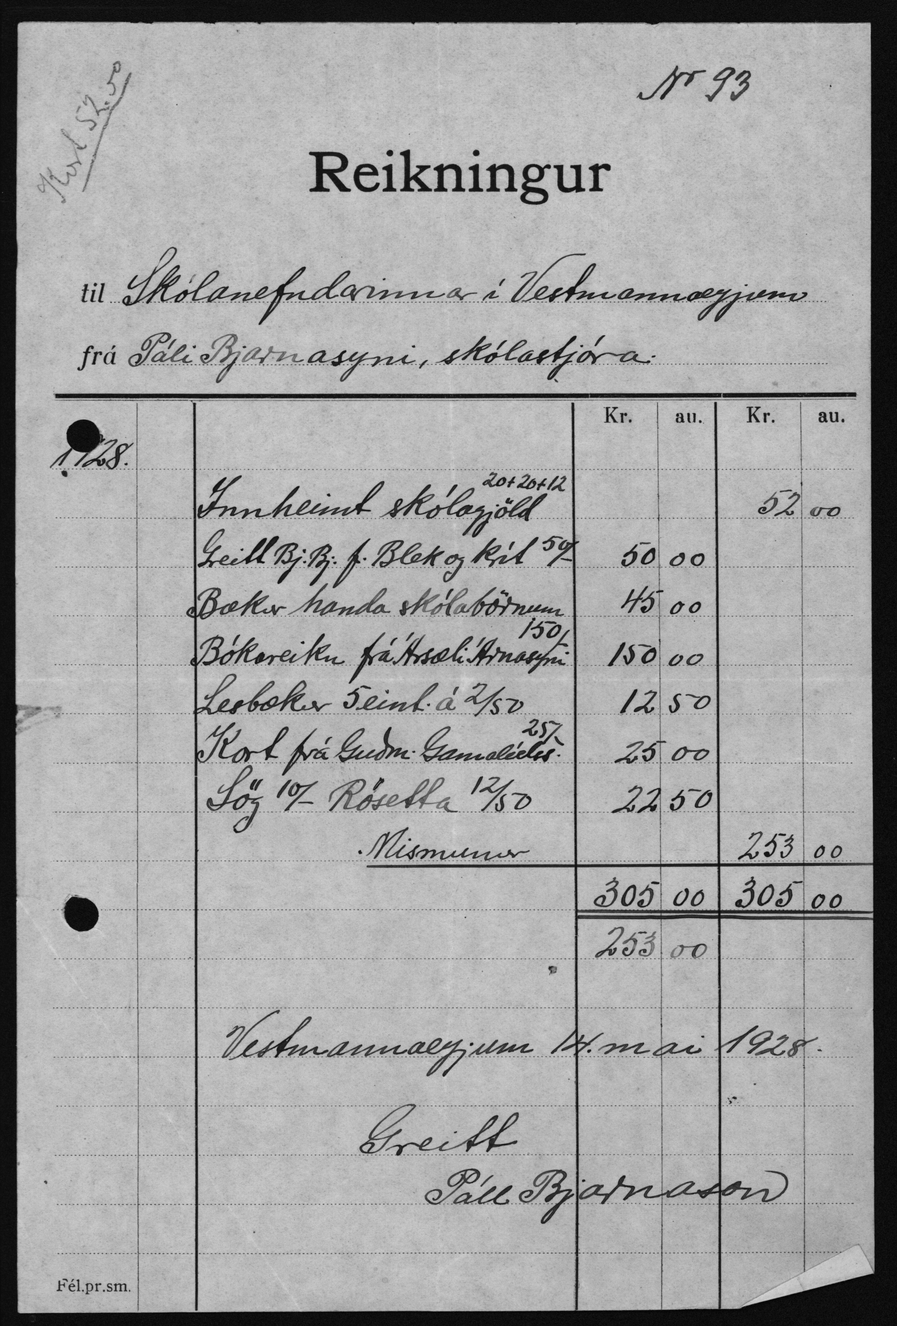 Kort 52.00
Nr 93
Reikningur
til Skólanefndarinnar í Vestmannaeyjum
frá Páli Bjarnasyni, skólastjóra.
Kr. au. Kr. au.
1928.
20+20+12
Innheimt skólagjöld 52 00
Greitt Bj. Bj. f. Blek og krít 50/- 50 00
Bækur handa skólabörnum 45 00
150/-
Bókareikn frá Ársæli Árnasyni 150 00
Lesbækur 5 eint. á 2/50 12 50
25/-
Kort frá Guðm. Gamalíels. 25 00
Sög 10/- Rósetta 12/50 22 50
Mismunur 253 00
305 00 305 00
253 00
Vestmannaeyjum 14. mai 1928.
Greitt
Páll Bjarnason
Fél.pr.sm.